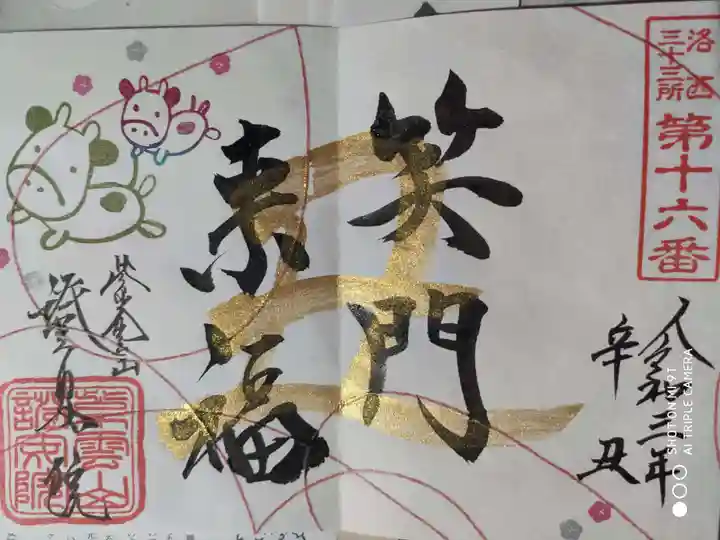 洛西
三十三所
第十六番
令和三年
辛丑
笑門
来福
紫雲山
證安院
紫雲山
證安院
SHOT ON MI 9T
AI TRIPLE CAMERA